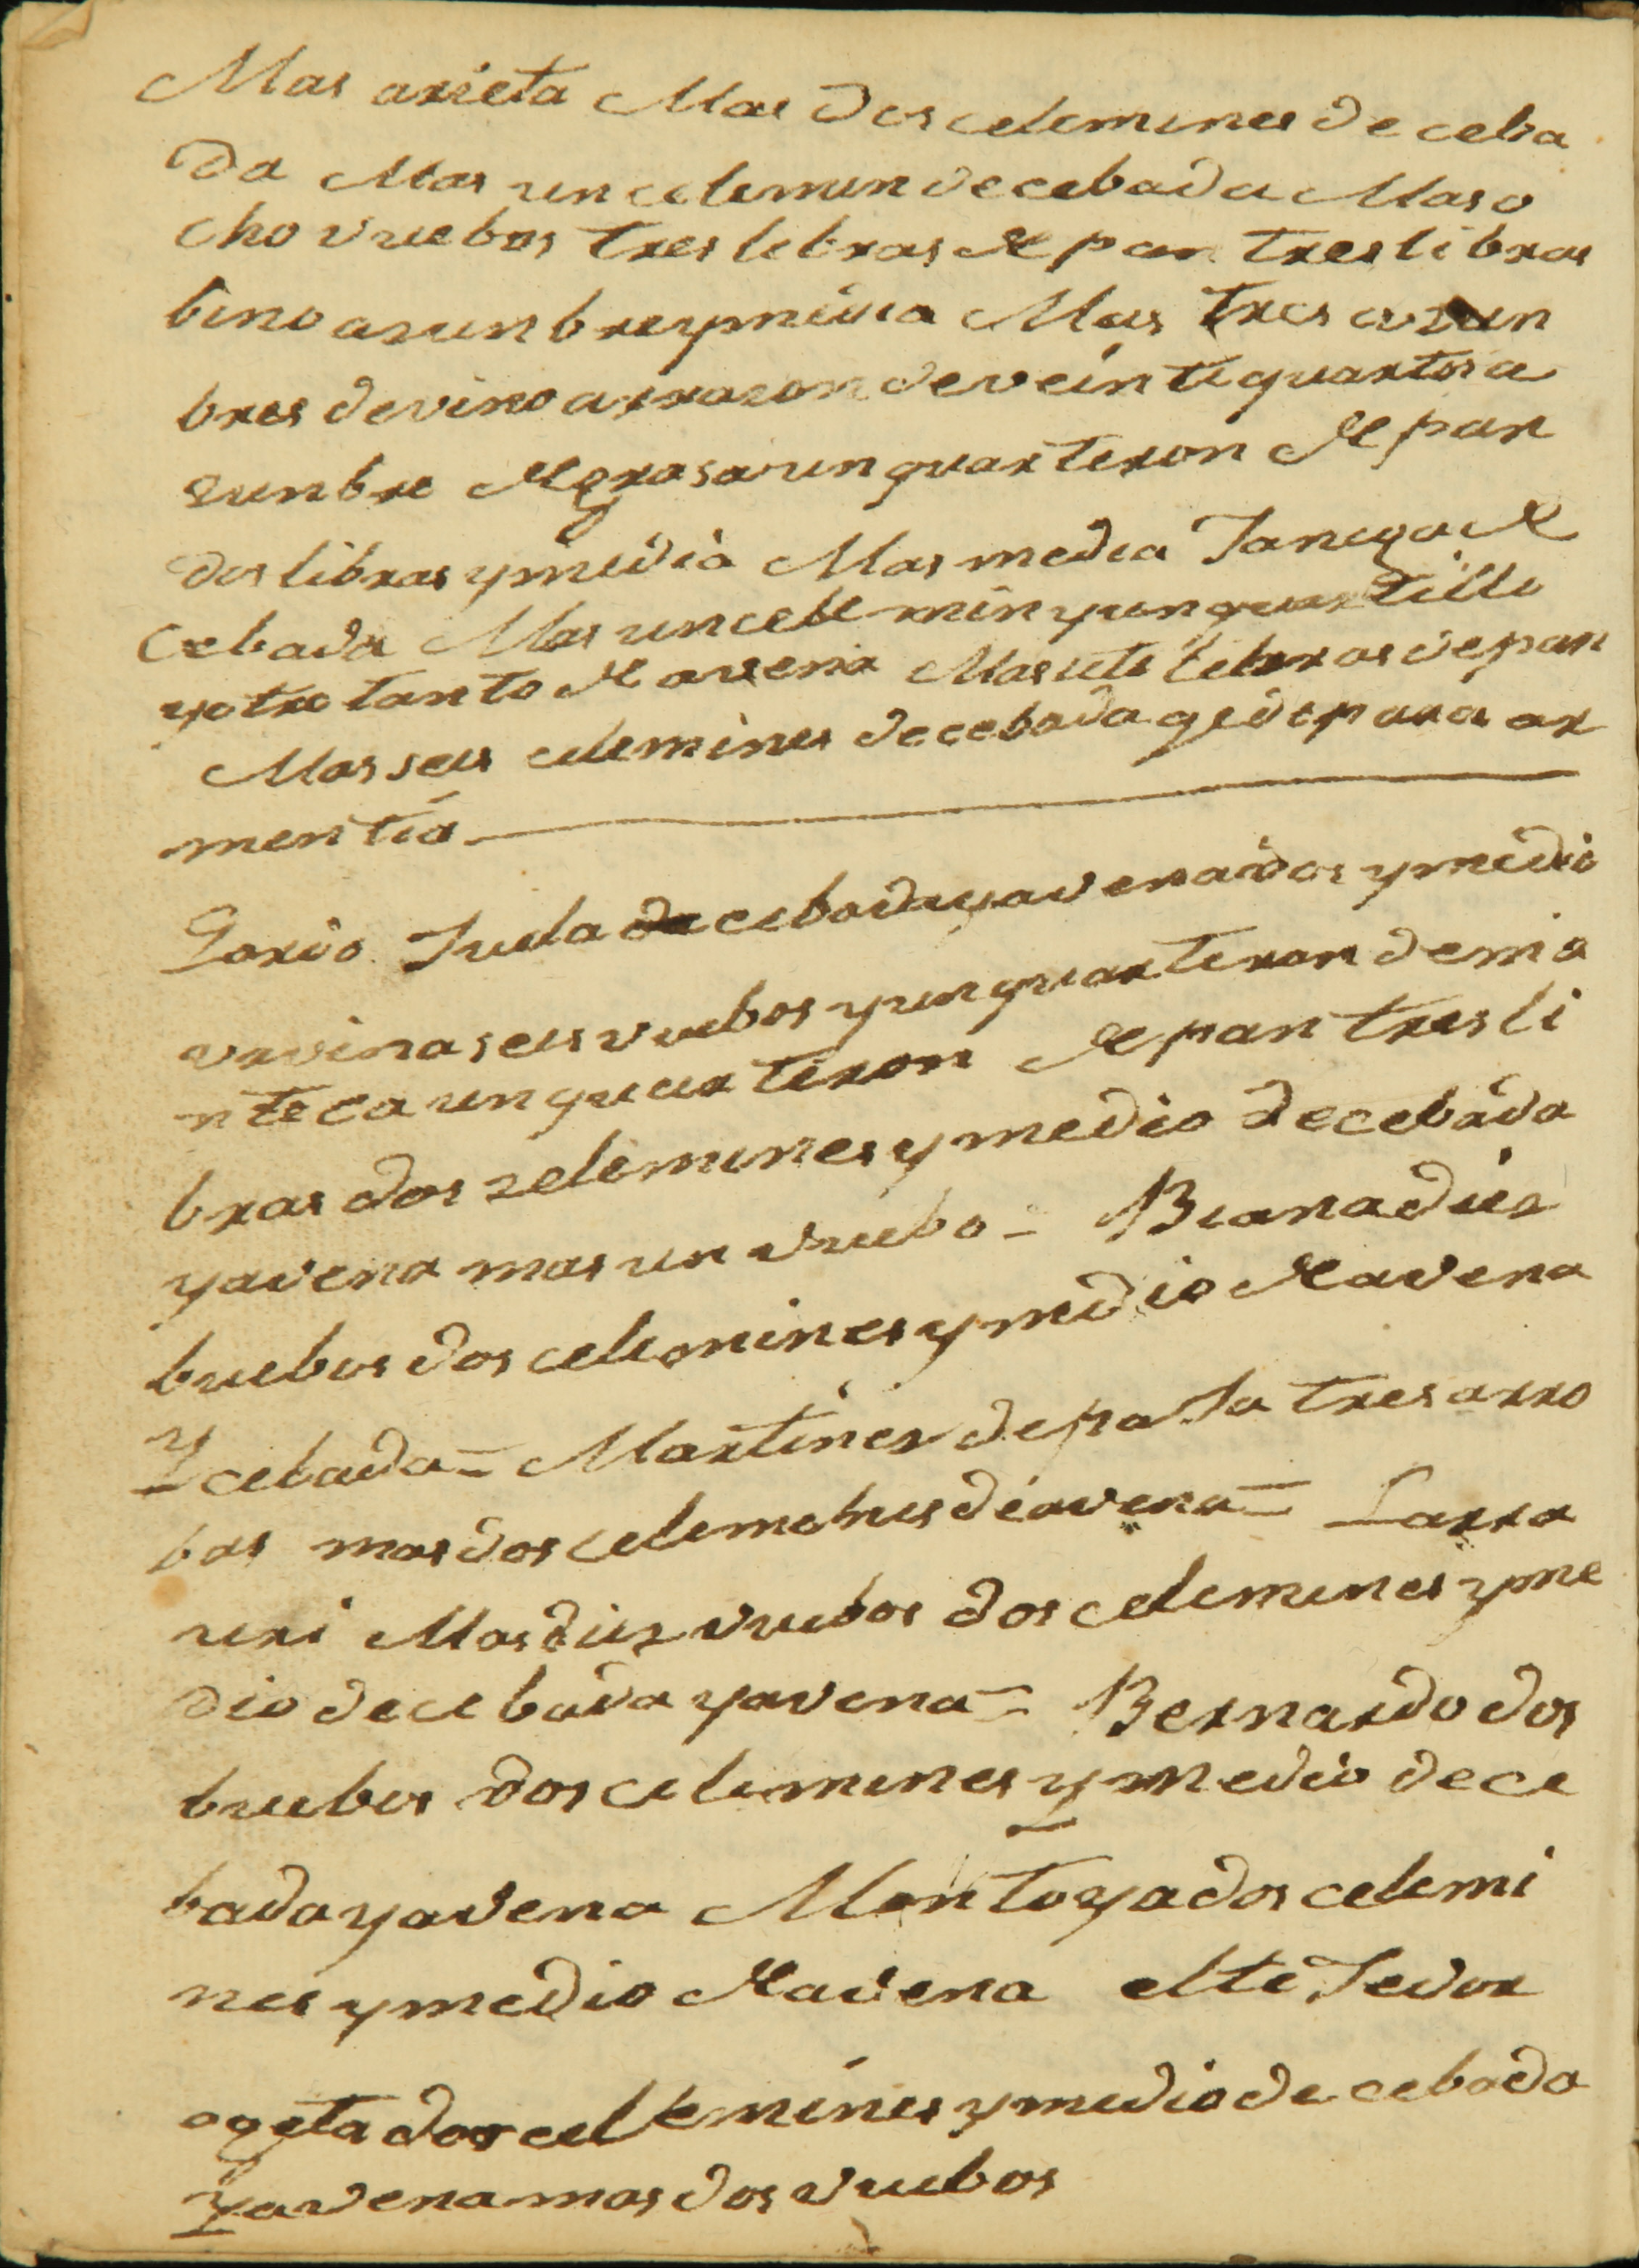 Mas arieta Mas dos celemines de ceba
da Mas un celemin de cebada Mas o
cho vuebos tres libras de pan tres libras
bino asunbre y media Mas tres asun
bres de vino a rrason de veinti quartos a
sunbre de grasa un quarteron de pan
dos libras y midia Mas media Fanega de
Cebada Mas un celle min y un quartillo
y otro tanto de avena Mas siete libras de pan
Mas seis celemines de cebada qe di para ar
mentia
Lordo Tuela de cebada y avena dos y midio
seis vuebos y un quarteron de ma
nteca un quarteron de pan tres li
bras dos zelemines y medio de cebada
y avena mas un vuebo = Biana diez
buebos dos celemines y medio de avena
y cebada = Martines de paja tres arro
bas mas dos celemines de avena = Larra
uri Mas diez vuebos dos celemines y me
dio de cebada y avena = Bernardo dos
buebos dos celemines y medio de ce
bada y avena Montoya dos celemi
nes y medio de avena el teJedor
ogeta dos cellemines y medio de cebada
y avena mas dos vuebos